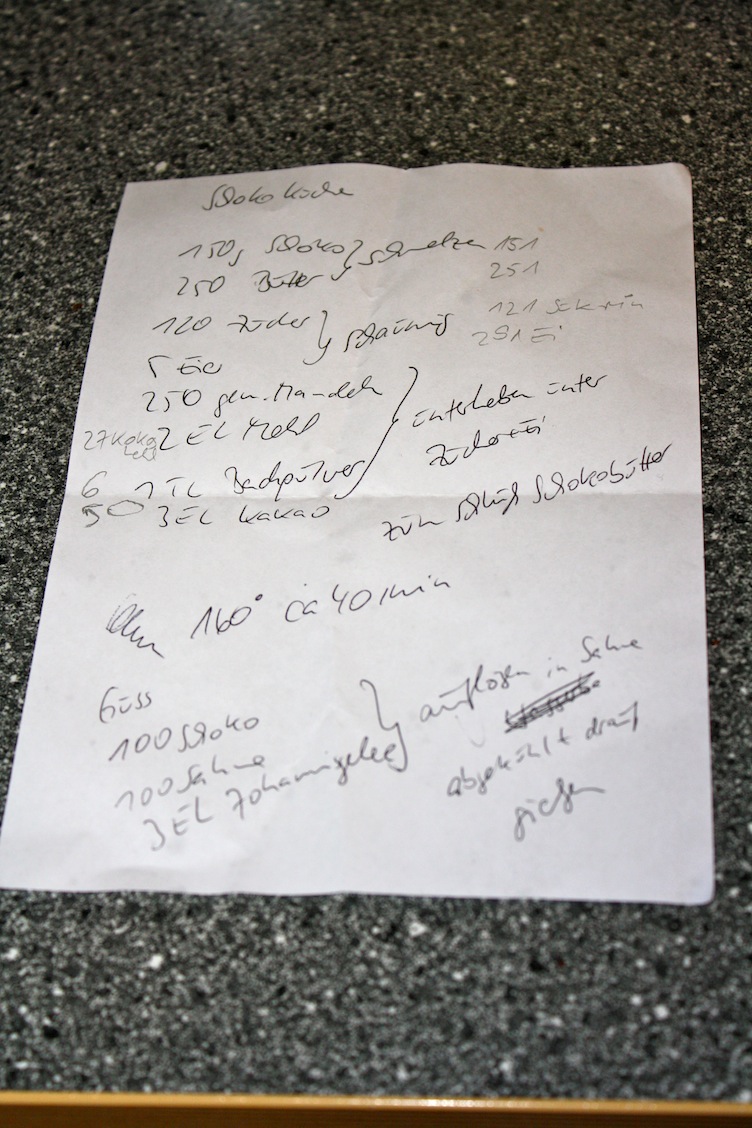 Schoko kuche
150g Schoko } schmelzen 151
250 Butter 251
120 Zucker } schaumig 121
5 Eier 291 Ei
250 gem. Mandeln
27 Koko Mehl 2 EL Mehl } unterheben unter
Zuckerei
6 1 TL Backpulver
50 3 EL Kakao zum Schluß Schokobutter
160° ca 40 min
Guss
100 Schoko } auflösen in Sahne
100 Sahne
3 EL Johannisgelee abgekühlt drauf
gießen